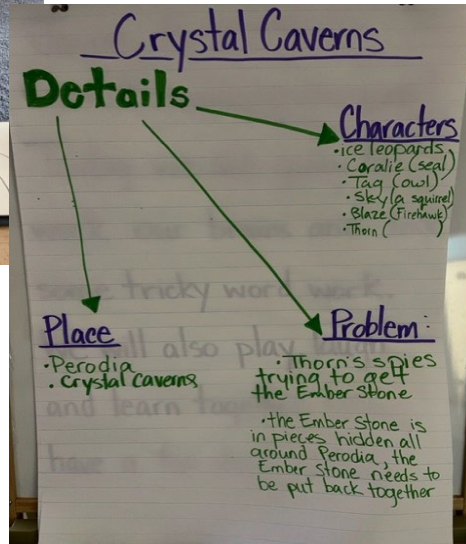 Crystal Caverns
Details
Characters
•ice leopards
•Coralie (seal)
•Tag (owl)
•Skyla squirrel)
•Blaze (Firehawk)
•Thorn (        )
Place
•Perodia
•Crystal Caverns
Problem:
•Thorn's spies
trying to get
the Ember Stone
•the Ember Stone is
in pieces hidden all
around Perodia, the
Ember Stone needs to
be put back together
some tricky word work.
will also play
and learn
have a